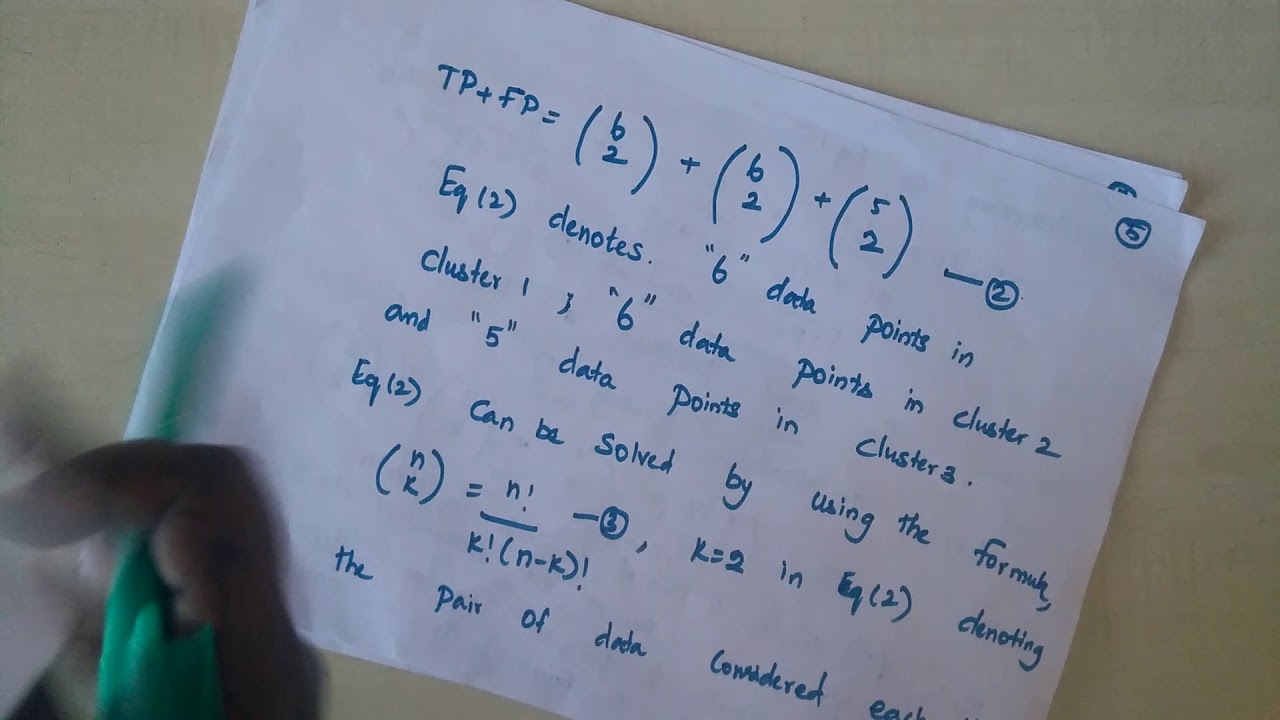 TP+FP = (6 2) + (6 2) + (5 2) — ②
⑤
Eq(2) denotes. "6" data points in
cluster 1 ; "6" data points in cluster 2
and "5" data points in cluster 3.
Eq(2) can be solved by using the formula,
(n k) = n! / k!(n-k)! — ③, k=2 in Eq(2) denoting
the pair of data considered each